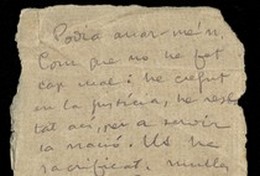 Podia anar-me'n.
Com que no he fet
cap mal i he cregut
en la justícia, he res-
tat ací, per a servir
la nació. Us he
sacrificat, muller